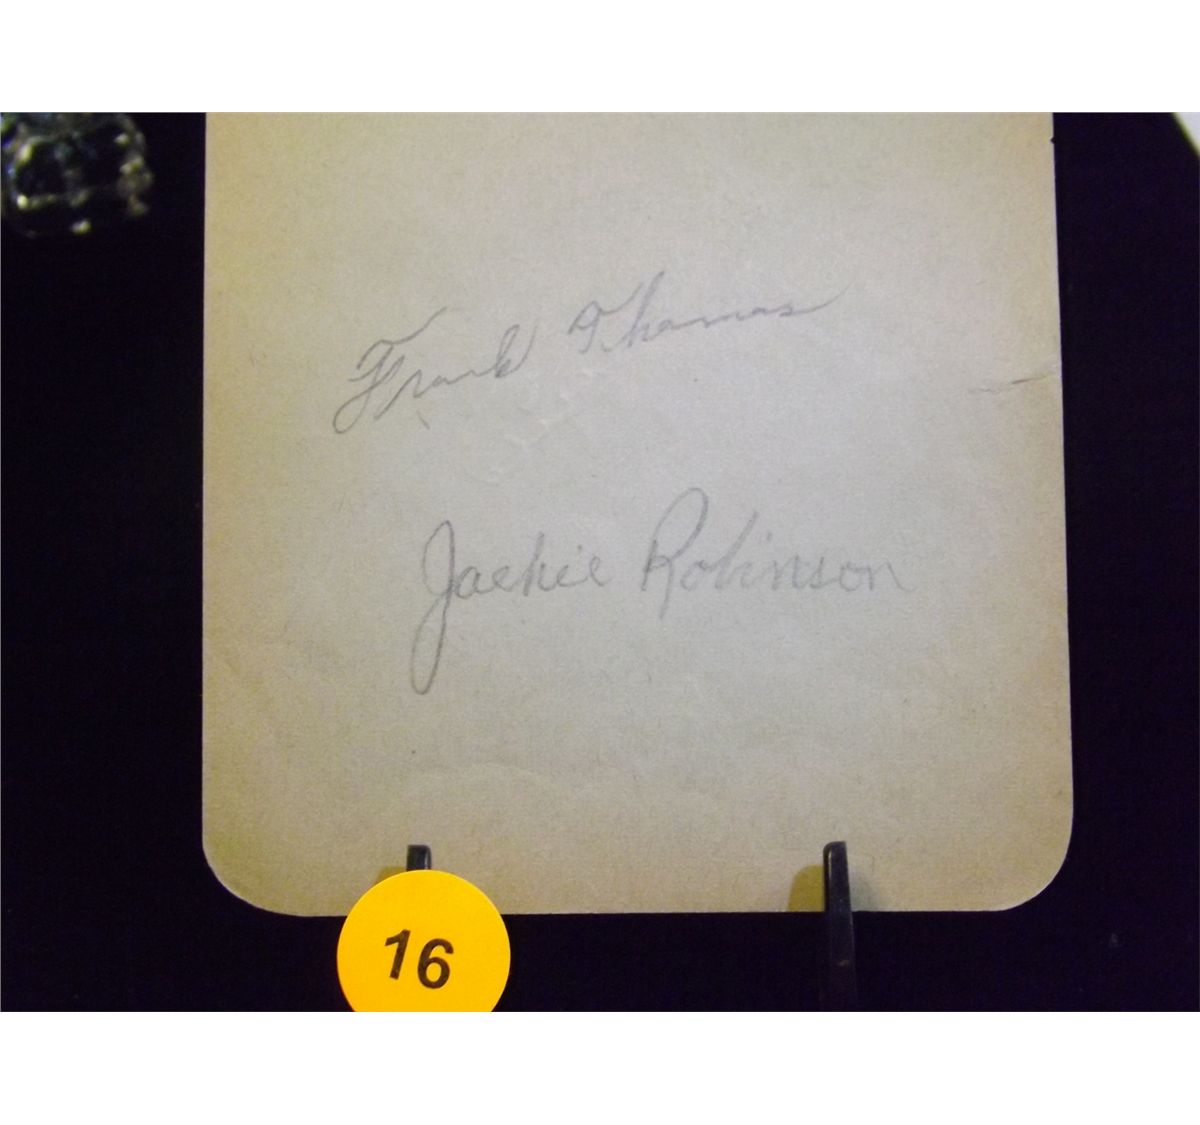 Frank Thomas
Jackie Robinson
16